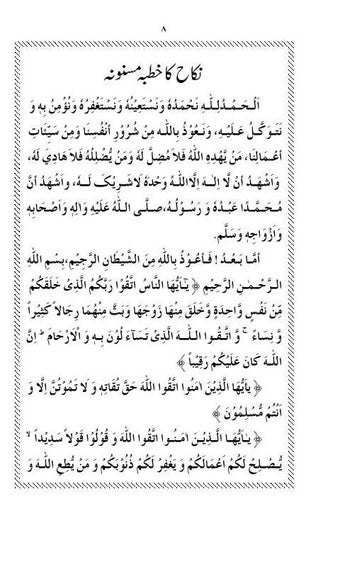 ۸
نکاح کا خطبہ مسنونہ
اَلْحَمْدُلِلّٰهِ نَحْمَدُهٗ وَنَسْتَعِیْنُهٗ وَنَسْتَغْفِرُهٗ وَنُؤْمِنُ بِهٖ وَ
نَتَوَكَّلُ عَلَیْهِ، وَنَعُوْذُ بِاللّٰهِ مِنْ شُرُوْرِ اَنْفُسِنَا وَمِنْ سَیِّئٰتِ
اَعْمَالِنَا، مَنْ یَّهْدِهِ اللّٰهُ فَلاَ مُضِلَّ لَهٗ وَمَنْ یُّضْلِلْهُ فَلاَهَادِیَ لَهٗ،
وَاَشْهَدُ اَنْ لَّا اِلٰهَ اِلَّااللّٰهُ وَحْدَهٗ لَاشَرِیْکَ لَهٗ، وَاَشْهَدُ اَنَّ
مُحَمَّدًا عَبْدُهٗ وَ رَسُوْلُهٗ، صلَّی اللّٰهُ عَلَیْهِ وَاٰلِهٖ وَاَصْحَابِهٖ
وَاَزْوَاجِهٖ وَسَلَّم.
اَمَّا بَعْدُ ! فَاَعُوْذُ بِاللّٰهِ مِنَ الشَّیْطَانِ الرَّجِیْمِ، بِسْمِ اللّٰهِ
الرَّحْمٰنِ الرَّحِیْمِ ﴿ یٰٓاَیُّهَا النَّاسُ اتَّقُوْا رَبَّکُمُ الَّذِیْ خَلَقَکُمْ
مِّنْ نَّفْسٍ وَّاحِدَةٍ وَّخَلَقَ مِنْهَا زَوْجَهَا وَبَثَّ مِنْهُمَا رِجَالاً کَثِیْراً
وَّ نِسَآءً ۚ وَ اتَّقُوا اللّٰهَ الَّذِیْ تَسَآءَ لُوْنَ بِهٖ وَ الْاَرْحَامَ ؕ اِنَّ
اللّٰهَ کَانَ عَلَیْکُمْ رَقِیْباً ﴾
﴿ یٰاَیُّهَا الَّذِیْنَ اٰمَنُوا اتَّقُوا اللّٰهَ حَقَّ تُقَاتِهٖ وَ لَا تَمُوْتُنَّ اِلَّا وَ
اَنْتُمْ مُّسْلِمُوْنَ ﴾
﴿ یٰاَیُّهَا الَّذِیْنَ اٰمَنُوا اتَّقُوا اللّٰهَ وَ قُوْلُوْا قَوْلاً سَدِیْداً ۙ
یُّصْلِحْ لَکُمْ اَعْمَالَکُمْ وَ یَغْفِرْ لَکُمْ ذُنُوْبَکُمْ وَ مَنْ یُّطِعِ اللّٰهَ وَ